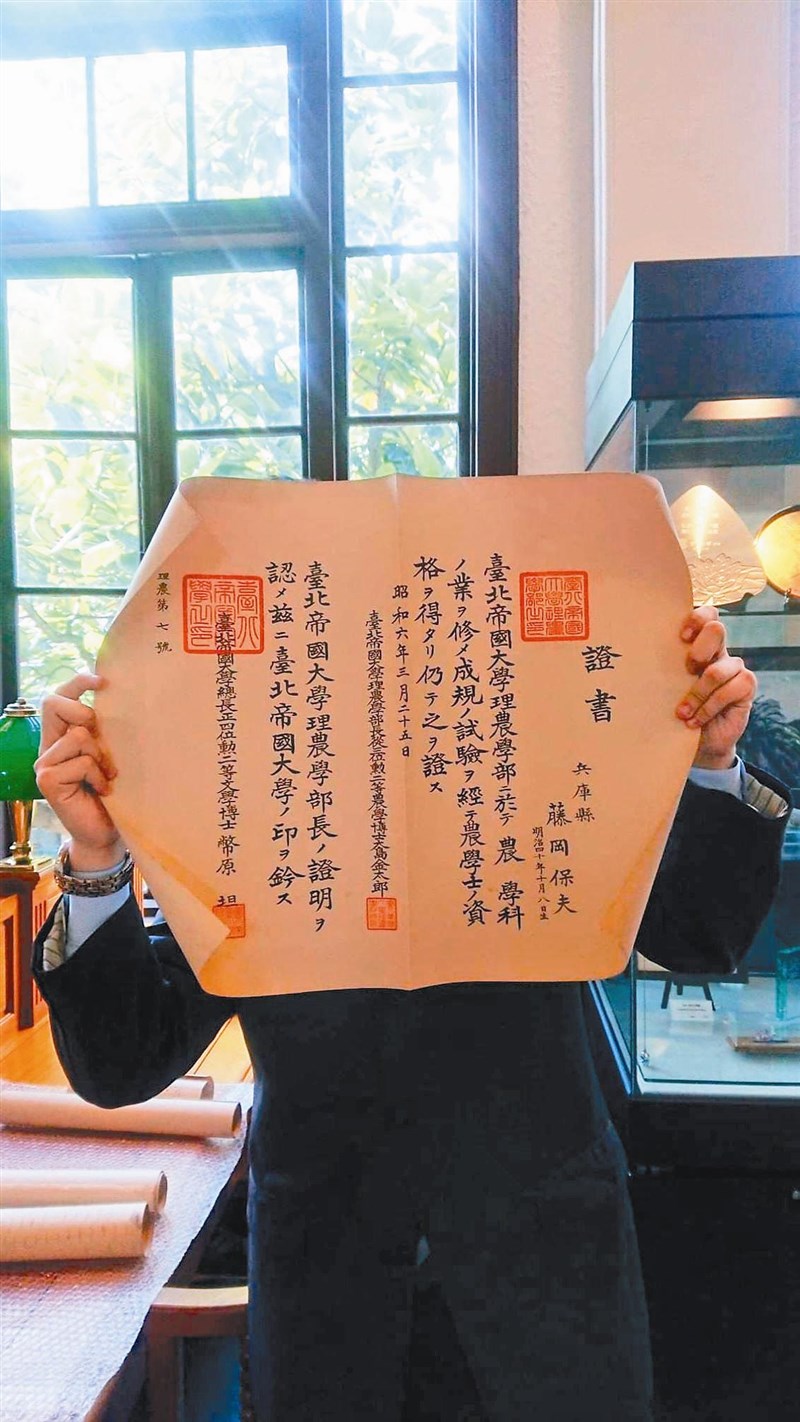 證書
兵庫縣
藤岡保夫
明治四十年十月八日生
臺北帝國大學理農學部ニ於テ農學科
ノ業ヲ修メ成規ノ試驗ヲ經テ農學士ノ資
格ヲ得タリ仍テ之ヲ證ス
昭和六年三月二十五日
臺北帝國大學理農學部長從三位勳二等農學博士大島金太郎
臺北帝國大學理農學部長ノ證明ヲ
認メ茲ニ臺北帝國大學ノ印ヲ鈐ス
臺北帝國大學總長正四位勳二等文學博士 幣原坦
理農第七號